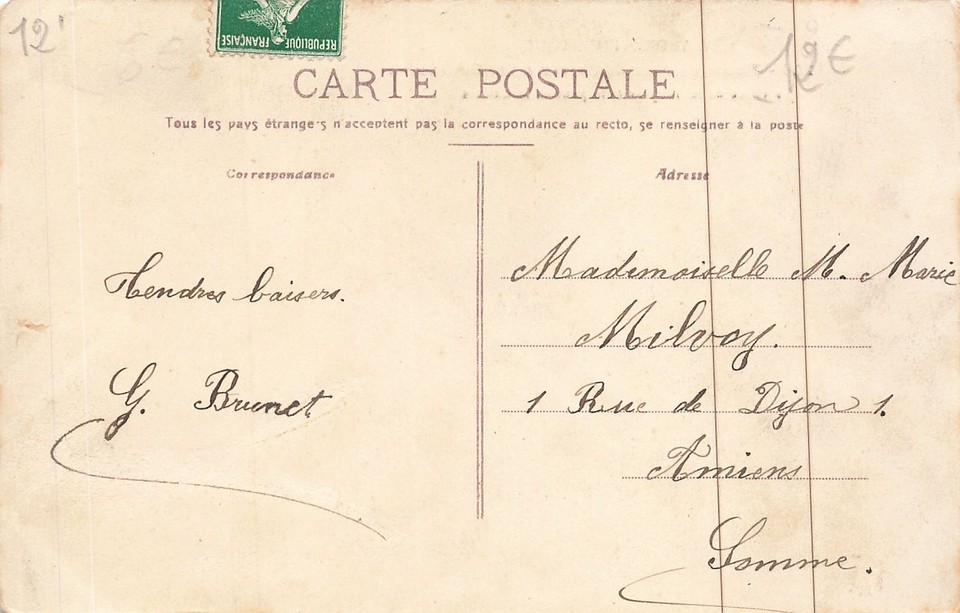 12'
RÉPUBLIQUE FRANÇAISE
12€
CARTE POSTALE
Tous les pays étrangers n'acceptent pas la correspondance au recto, se renseigner à la poste
Correspondance
Adresse
Tendres baisers.
G. Brunet
Mademoiselle M. Marie
Milvoy.
1 Rue de Dijon 1.
Amiens
Somme.